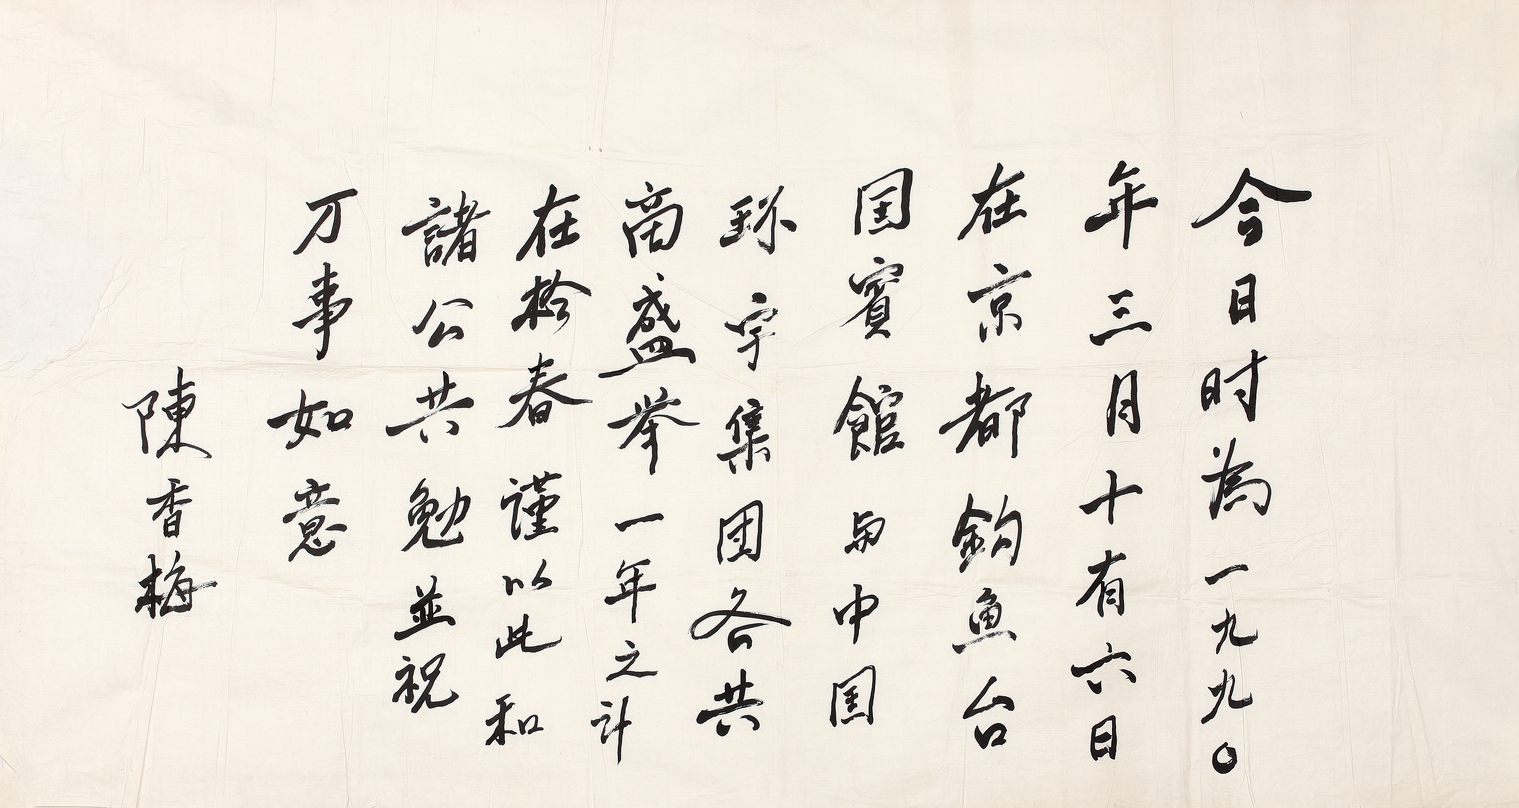 今日时為一九九〇
年三月十有六日
在京都钓魚台
国賓館与中国
环宇集团各共
商盛举一年之计
在於春謹以此和
諸公共勉並祝
万事如意
陳香梅